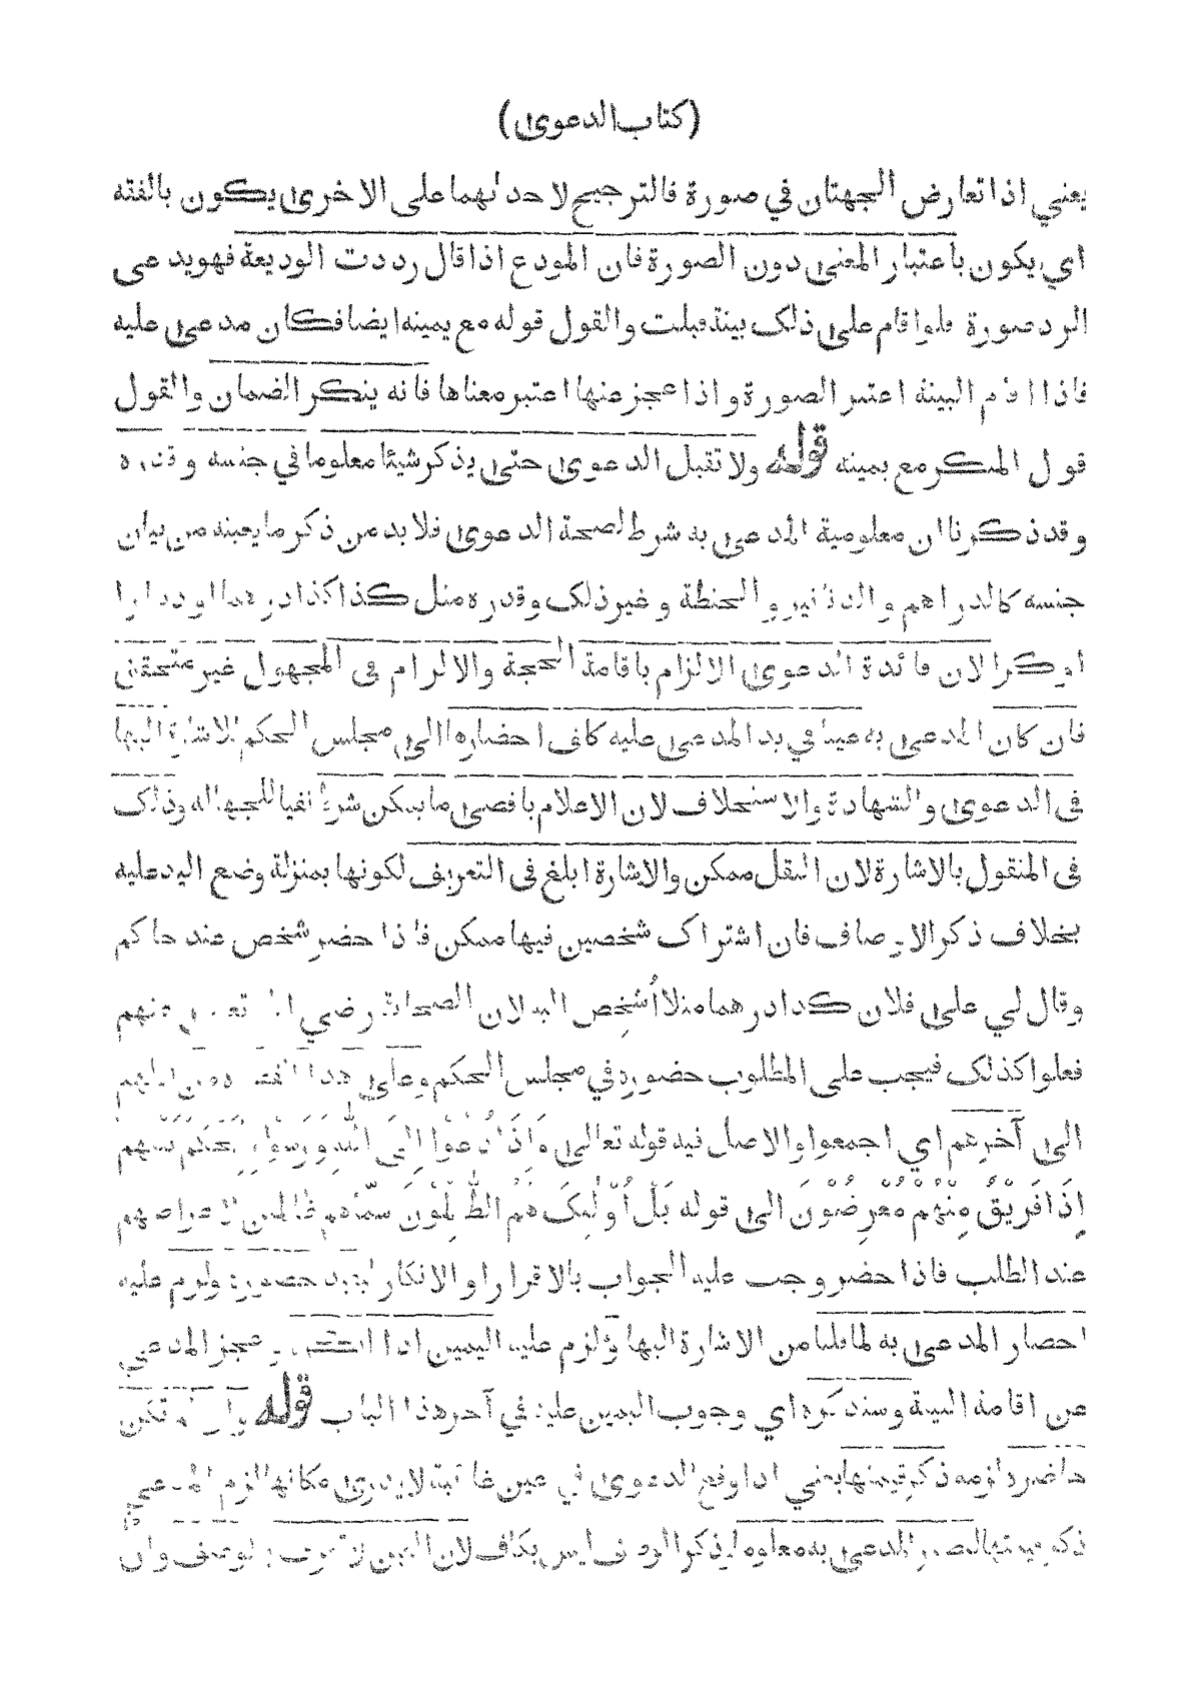 (كتاب الدعوى)
يعني اذا تعارض الجهتان في صورة فالترجيح لاحدٰلهما على الاخرى يكون بالفقه
اي يكون باعتبار المعنى دون الصورة فان المودع اذا قال رددت الوديعة فهو يدعى
الرد صورة فلو اقام على ذلك بينة قبلت والقول قوله مع يمينه ايضا فكان مدعى عليه
فاذا اقام البينة اعتبر الصورة و اذا عجز عنها اعتبر معناها فانه ينكر الضمان والقول
قول المنكر مع يمينه قوله ولا تقبل الدعوى حتى يذكر شيئا معلوما في جنسه وقدره
وقد ذكرنا ان معلومية المدعى به شرط لصحة الدعوى فلا بد من ذكر ما يعينه من بيان
جنسه كالدراهم والدنانير والحنطة وغير ذلك وقدره مثل كذا كذا درهما او دينارا
او كرا لان فائدة الدعوى الالزام باقامة الحجة والالزام فى المجهول غير متحقق
فان كان المدعى به عينا في يد المدعى عليه كلف احضاره الى مجلس الحكم للاشارة اليها
فى الدعوى والشهادة والاستحلاف لان الاعلام باقصى ما يمكن شرط نفيا للجهالة وذلك
فى المنقول بالاشارة لان النقل ممكن والاشارة ابلغ فى التعريف لكونها بمنزلة وضع اليد عليه
بخلاف ذكر الاوصاف فان اشتراك شخصين فيها ممكن فاذا حضر شخص عند حاكم
وقال لي على فلان كذا درهما مثلا أشخص اليه لان الصحابة رضي الله تعالى عنهم
فعلوا كذلك فيجب على المطلوب حضوره في مجلس الحكم وعلى هذا القضاة من اولهم
الى آخرهم اي اجمعوا والاصل فيه قوله تعالى وَإِذَا دُعُوْا إِلَى اللّٰهِ وَرَسُوْلِهِ لِيَحْكُمَ بَيْنَهُمْ
إِذَا فَرِيْقٌ مِنْهُمْ مُعْرِضُوْنَ الى قوله بَلْ أُوْلٰئِكَ هُمُ الظّٰلِمُوْنَ سمّاهم ظالمين لاعراضهم
عند الطلب فاذا حضر وجب عليه الجواب بالاقرار او الانكار ليفيد حضوره ولزم عليه
احضار المدعى به لما قلنا من الاشارة اليها ولزم عليه اليمين اذا انكر و عجز المدعي
عن اقامة البينة وسنذكره اي وجوب اليمين عليه في آخر هذا الباب قوله وان لم تكن
حاضرة لزمه ذكر قيمتها يعني اذا وقع الدعوى في عين غائبة لا يدرى مكانها لزم المدعي
ذكر قيمتها ليصير المدعى به معلوما اذ ذكر الوصف ليس بكاف لان العين لا تعرف بالوصف وان